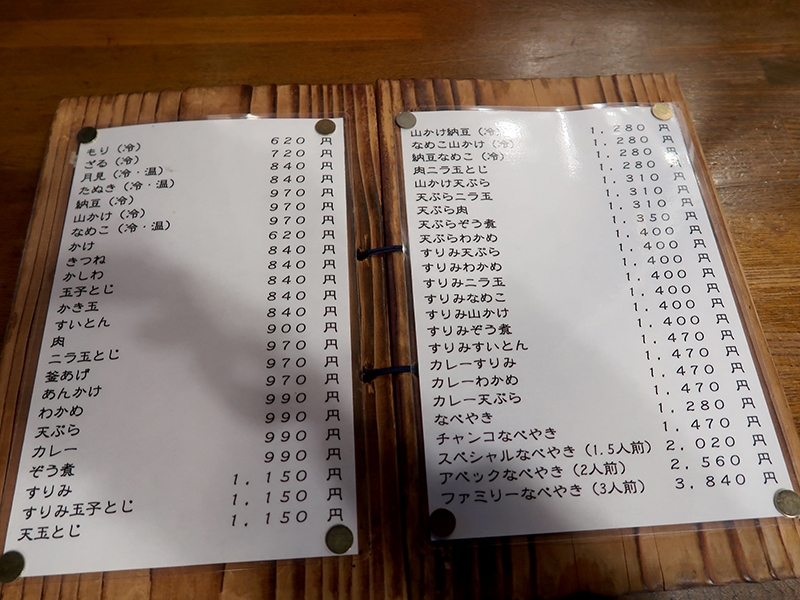 もり（冷） 620円
ざる（冷） 720円
月見（冷・温） 840円
たぬき（冷・温） 840円
納豆（冷） 970円
山かけ（冷） 970円
なめこ（冷・温） 970円
かけ 620円
きつね 840円
かしわ 840円
玉子とじ 840円
かき玉 840円
すいとん 840円
肉 900円
ニラ玉とじ 970円
釜あげ 970円
あんかけ 970円
わかめ 990円
天ぷら 990円
カレー 990円
ぞう煮 990円
すりみ 1,150円
すりみ玉子とじ 1,150円
天玉とじ 1,150円
山かけ納豆（冷） 1,280円
なめこ山かけ（冷） 1,280円
納豆なめこ（冷） 1,280円
肉ニラ玉とじ 1,280円
山かけ天ぷら 1,310円
天ぷらニラ玉 1,310円
天ぷら肉 1,310円
天ぷらぞう煮 1,350円
天ぷらわかめ 1,400円
すりみ天ぷら 1,400円
すりみわかめ 1,400円
すりみニラ玉 1,400円
すりみなめこ 1,400円
すりみ山かけ 1,400円
すりみぞう煮 1,400円
すりみすいとん 1,470円
カレーすりみ 1,470円
カレーわかめ 1,470円
カレー天ぷら 1,470円
なべやき 1,280円
チャンコなべやき 1,470円
スペシャルなべやき（1.5人前） 2,020円
アベックなべやき（2人前） 2,560円
ファミリーなべやき（3人前） 3,840円